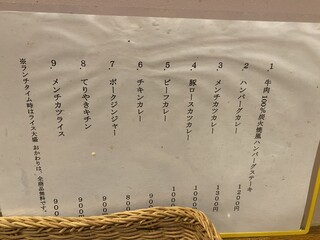 1. 牛肉100%炭火焼風ハンバーグステーキ
2. ハンバーグカレー 1200円
3. メンチカツカレー 1300円
4. 豚ロースカツカレー 1300
5. ビーフカレー 1000
6. チキンカレー 900
7. ポークジンジャー 900
8. てりやきチキン 800
9. メンチカツライス 900
※ランチタイム時はライス大盛 おかわりは、全商品無料です。